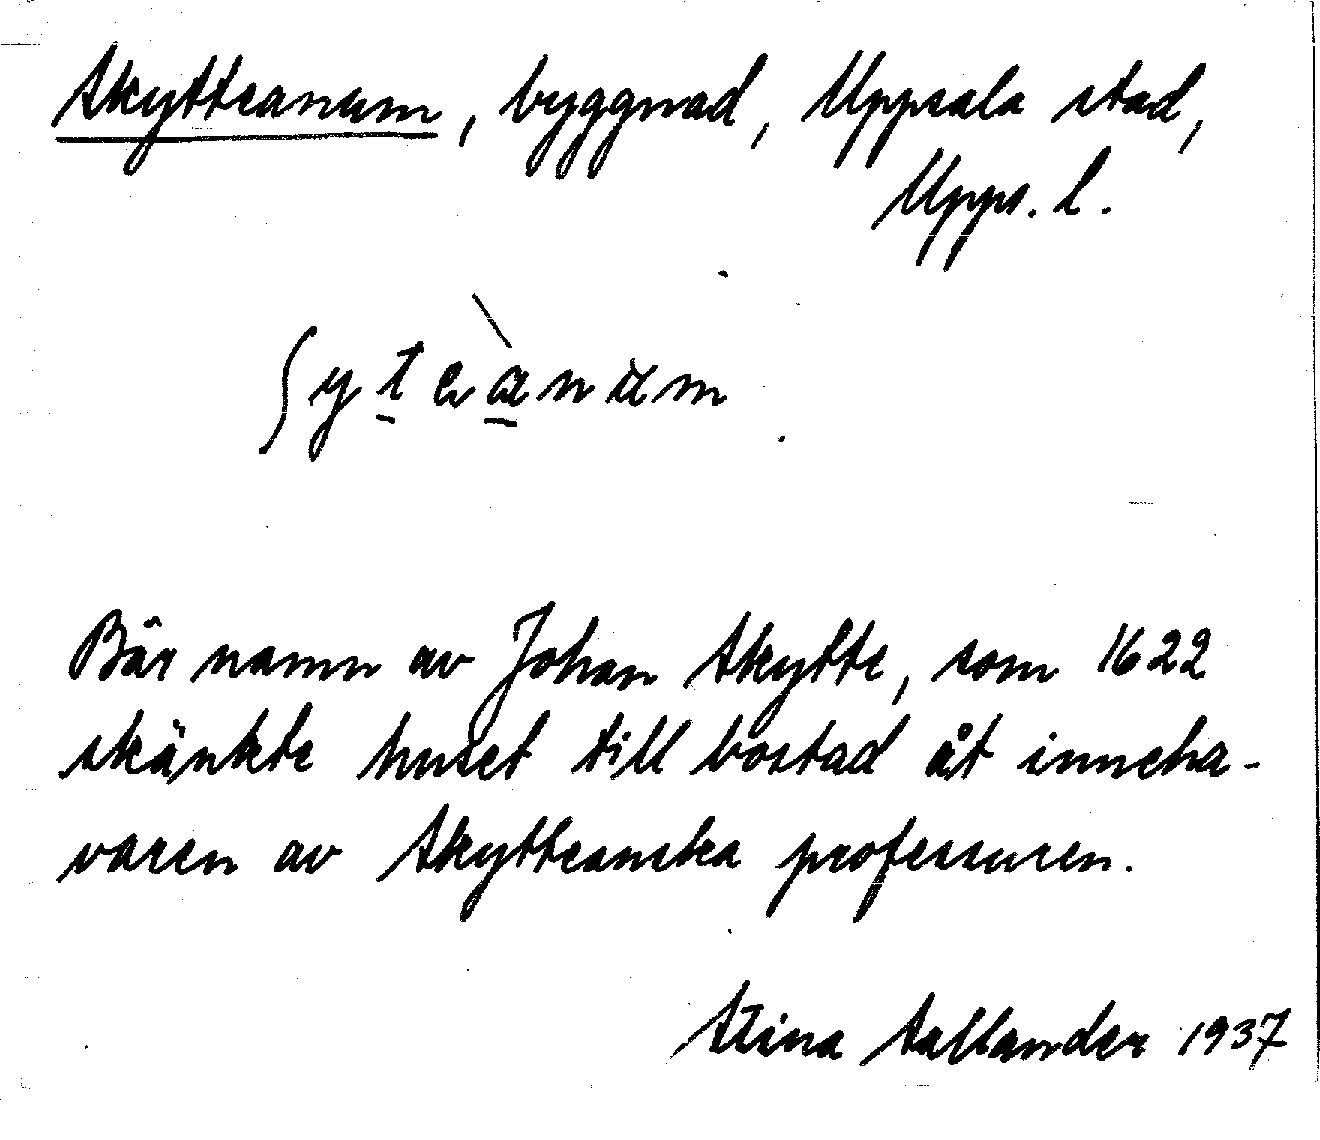 Skytteanum, byggnad, Uppsala stad,
Upps. l.
ʃyteànum
Bär namn av Johan Skytte, som 1622
skänkte huset till bostad åt inneha-
varen av Skytteanska professuren.
Stina Sallander 1937